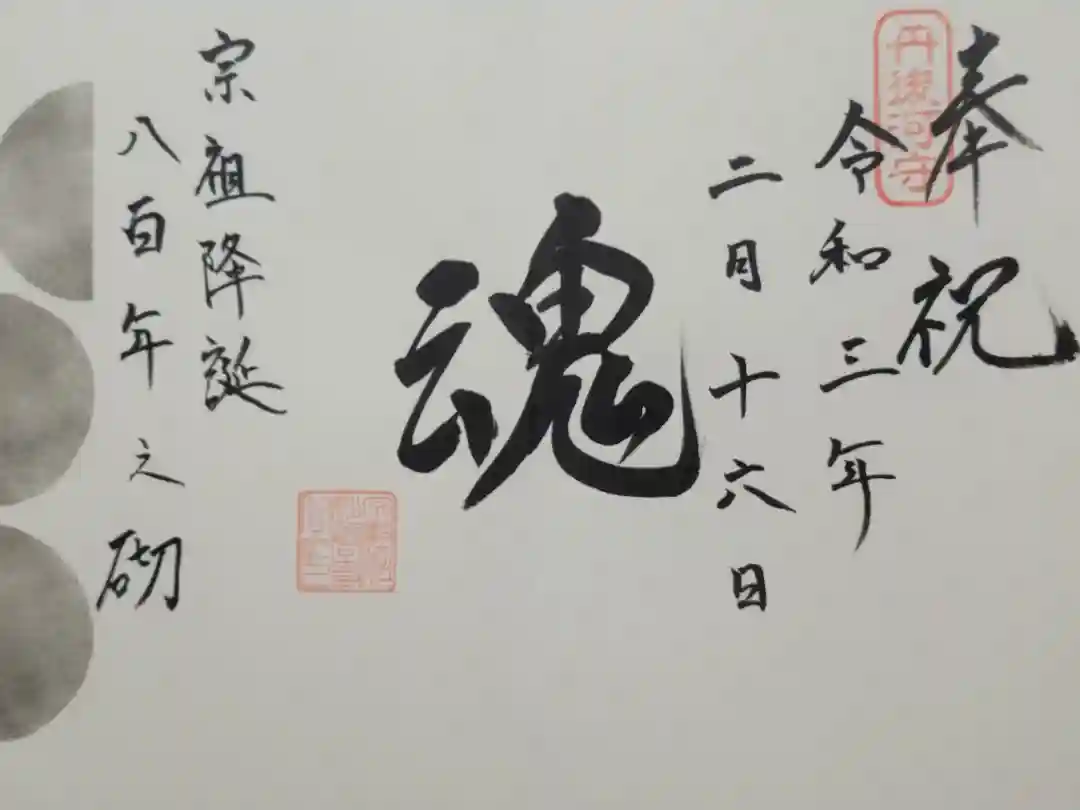 奉祝
丹後河守
令和三年
二月十六日
魂
宗祖降誕
八百年之砌